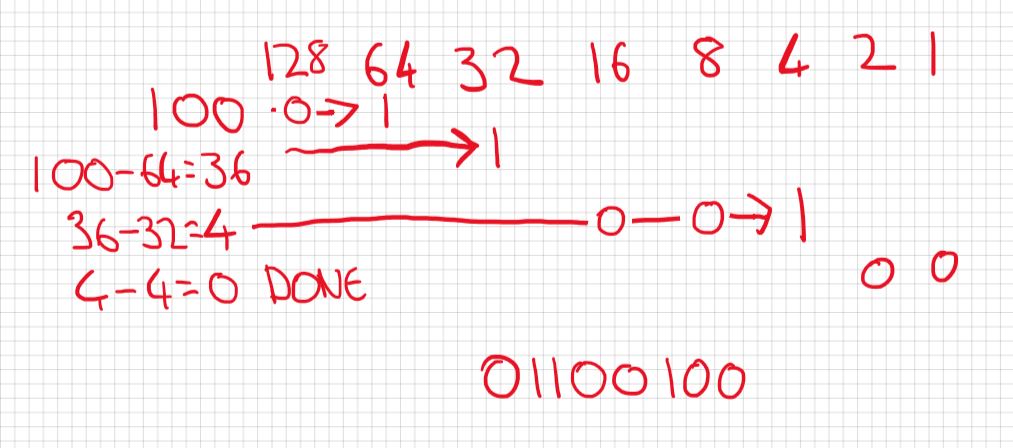 128 64 32 16 8 4 2 1
100 ·0→1
→1
100-64=36
36-32=4 — 0 — 0→1
4-4=0 DONE 0 0
01100100